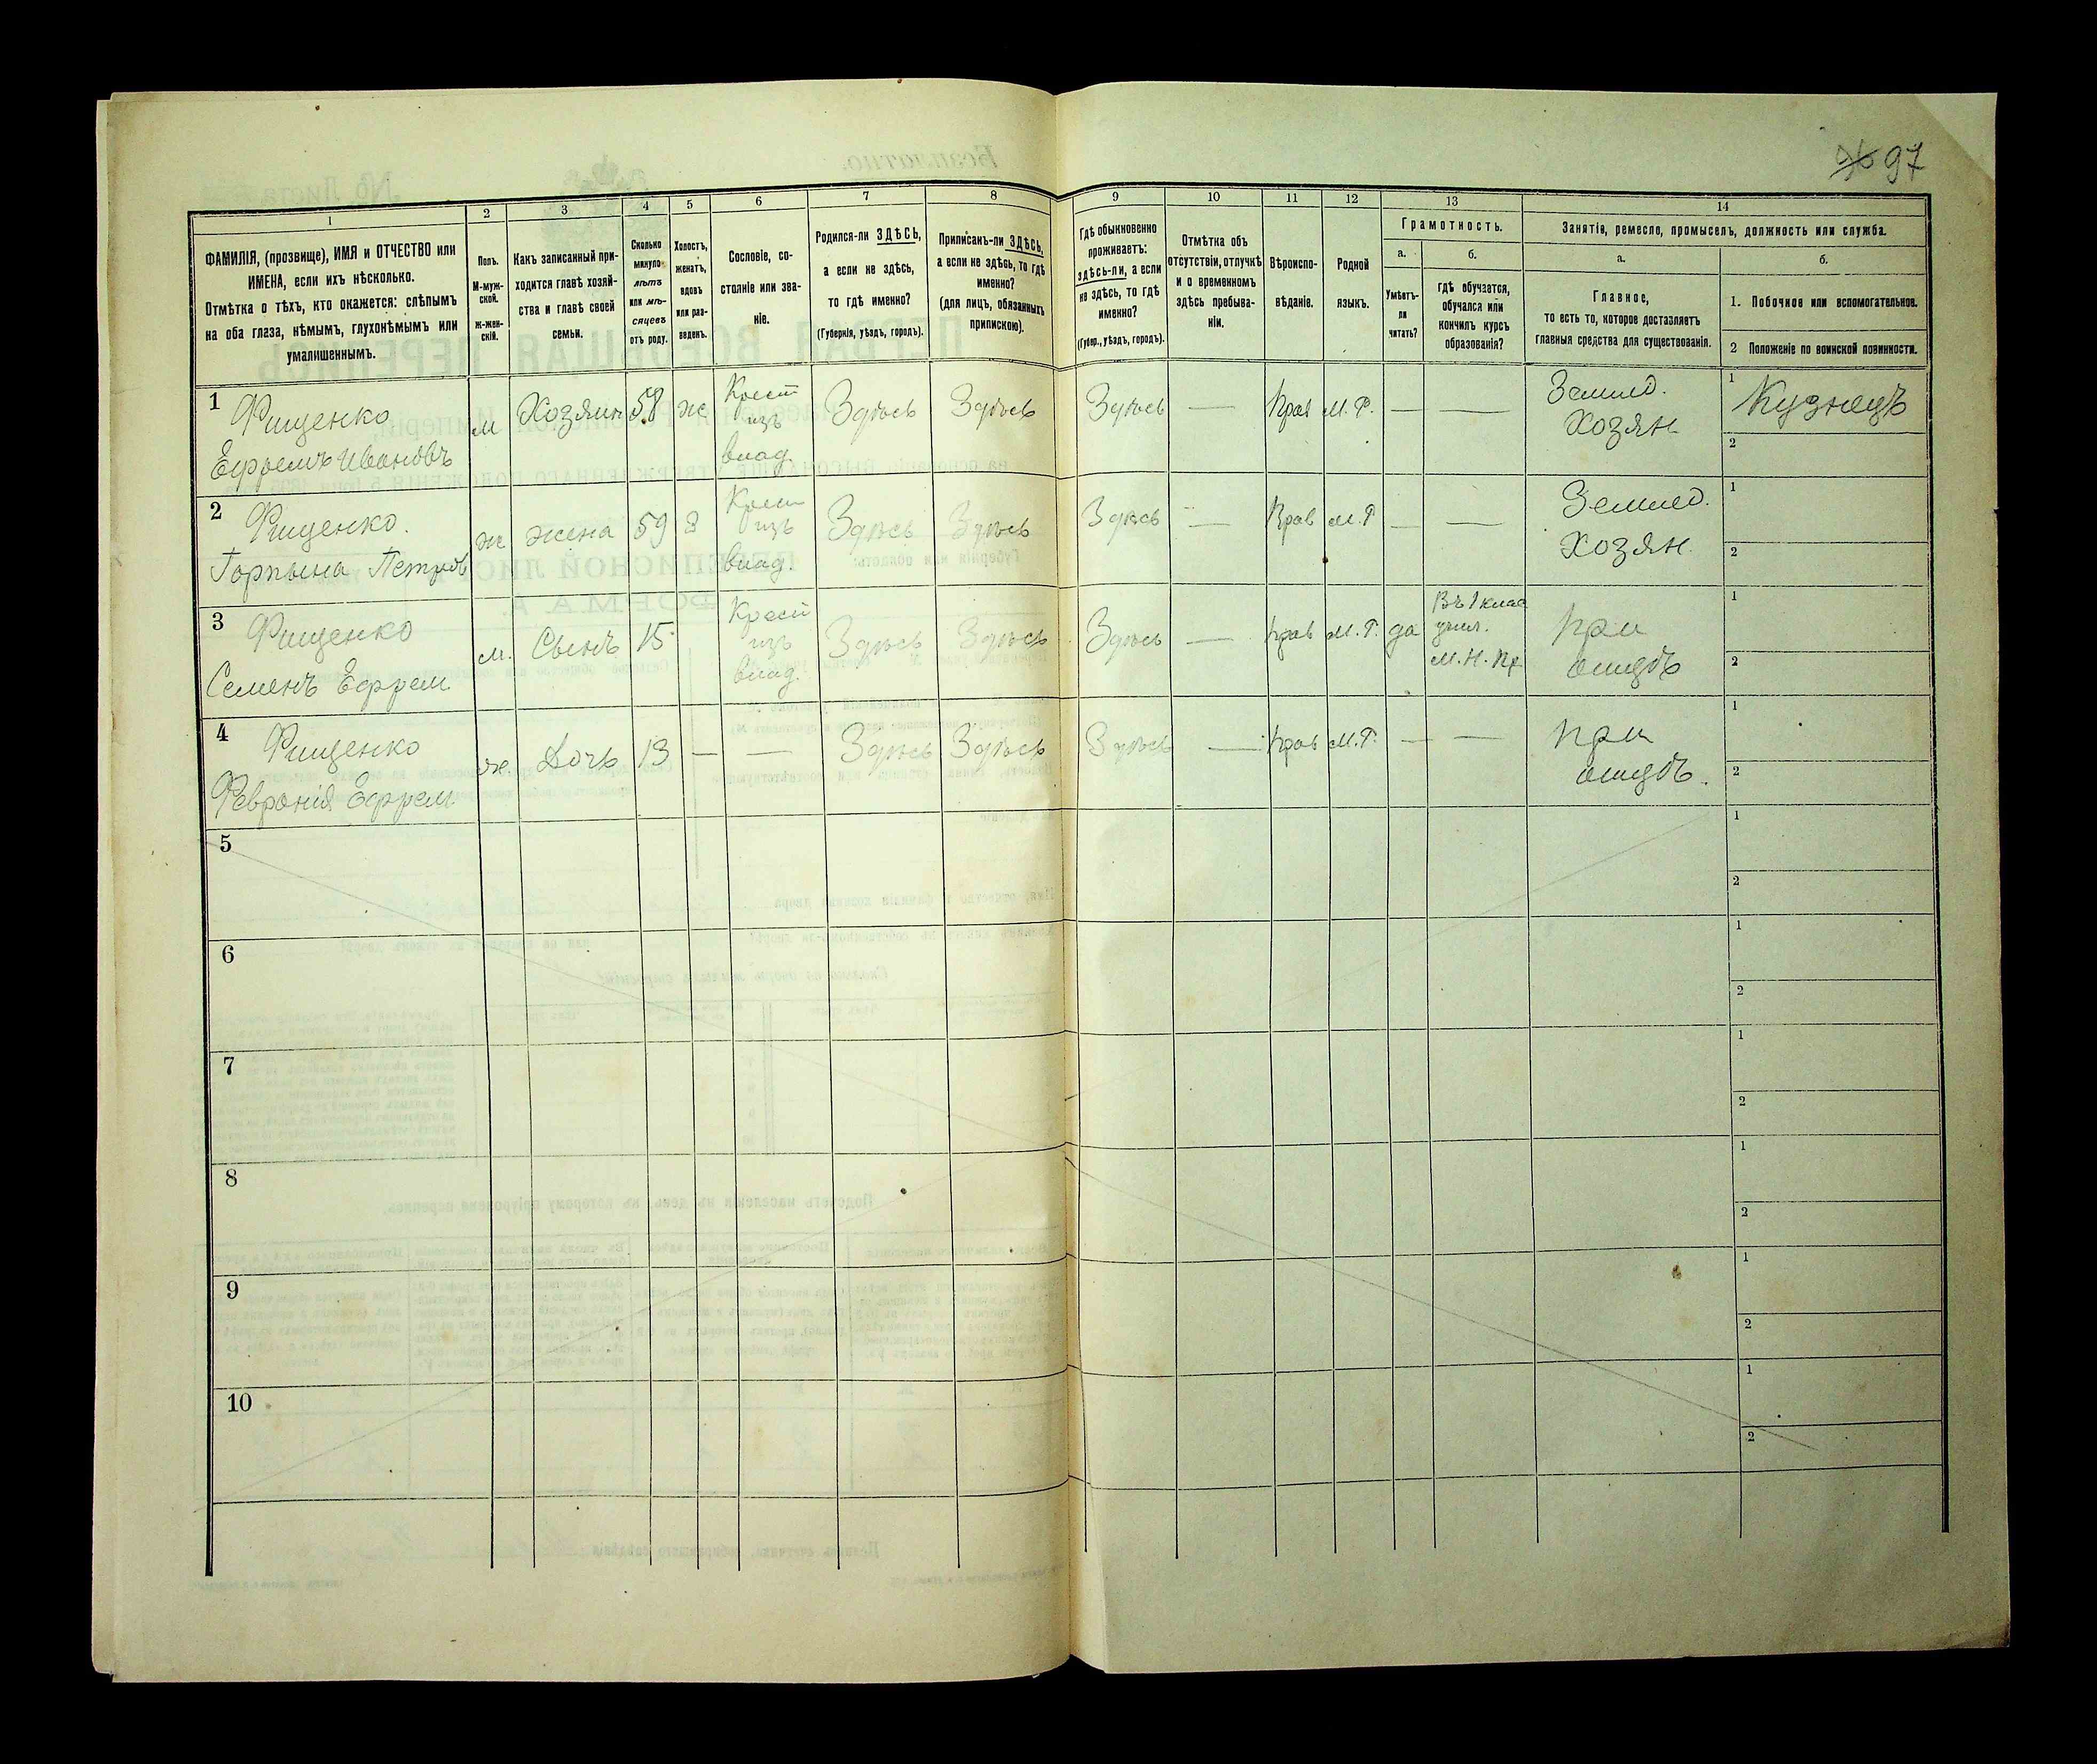 97
1 2 3 4 5 6 7 8 9 10 11 12 13 14
ФАМИЛІЯ, (прозвище), ИМЯ и ОТЧЕСТВО или
ИМЕНА, если ихъ нѣсколько.
Отмѣтка о тѣхъ, кто окажется: слѣпымъ
на оба глаза, нѣмымъ, глухонѣмымъ или
умалишеннымъ.
Полъ.
М-муж-
ской.
Ж-жен-
скій.
Какъ записанный при-
ходится главѣ хозяй-
ства и главѣ своей
семьи.
Сколько
минуло
лѣтъ
или мѣ-
сяцевъ
отъ роду.
Холостъ,
женатъ,
вдовъ
или раз-
веденъ.
Сословіе, со-
стояніе или зва-
ніе.
Родился-ли ЗДѢСЬ,
а если не здѣсь,
то гдѣ именно?
(Губернія, уѣздъ, городъ).
Приписанъ-ли ЗДѢСЬ,
а если не здѣсь, то гдѣ
именно?
(для лицъ, обязанныхъ
припискою).
Гдѣ обыкновенно
проживаетъ:
здѣсь-ли, а если
не здѣсь, то гдѣ
именно?
(Губер., уѣздъ, городъ).
Отмѣтка объ
отсутствіи, отлучкѣ
и о временномъ
здѣсь пребыва-
ніи.
Вѣроиспо-
вѣданіе.
Родной
языкъ.
Грамотность.
а.
Умѣетъ-
ли
читать?
б.
гдѣ обучается,
обучался или
кончилъ курсъ
образованія?
Занятіе, ремесло, промыселъ, должность или служба.
а.
Главное,
то есть то, которое доставляетъ
главныя средства для существованія.
б.
1. Побочное или вспомогательное.
2 Положеніе по воинской повинности.
1 Фищенко
Ефремъ Ивановъ
м Хозяин 58 ж
Крест
изъ
влад.
Здѣсь Здѣсь Здѣсь — Прав М.Р. — —
Землед.
Хозян
1 Кузнецъ
2
2 Фищенко.
Горпына Петров
ж жена 59 З
Крест
изъ
влад.
Здѣсь Здѣсь Здѣсь — Прав М.Р — —
Землед.
Хозян
1
2
3 Фищенко
Семенъ Ефрем.
м. Сынъ 15
Крест
изъ
влад.
Здѣсь Здѣсь Здѣсь — Прав М.Р. да
Въ 1 клас
учил.
М.Н.Пр
При
отцѣ
1
2
4 Фищенко
Февронія Ефрем.
ж Дочь 13 — — Здѣсь Здѣсь Здѣсь — Прав М.Р. — —
При
отцѣ.
1
2
5
1
2
6
1
2
7
1
2
8
1
2
9
1
2
10
1
2